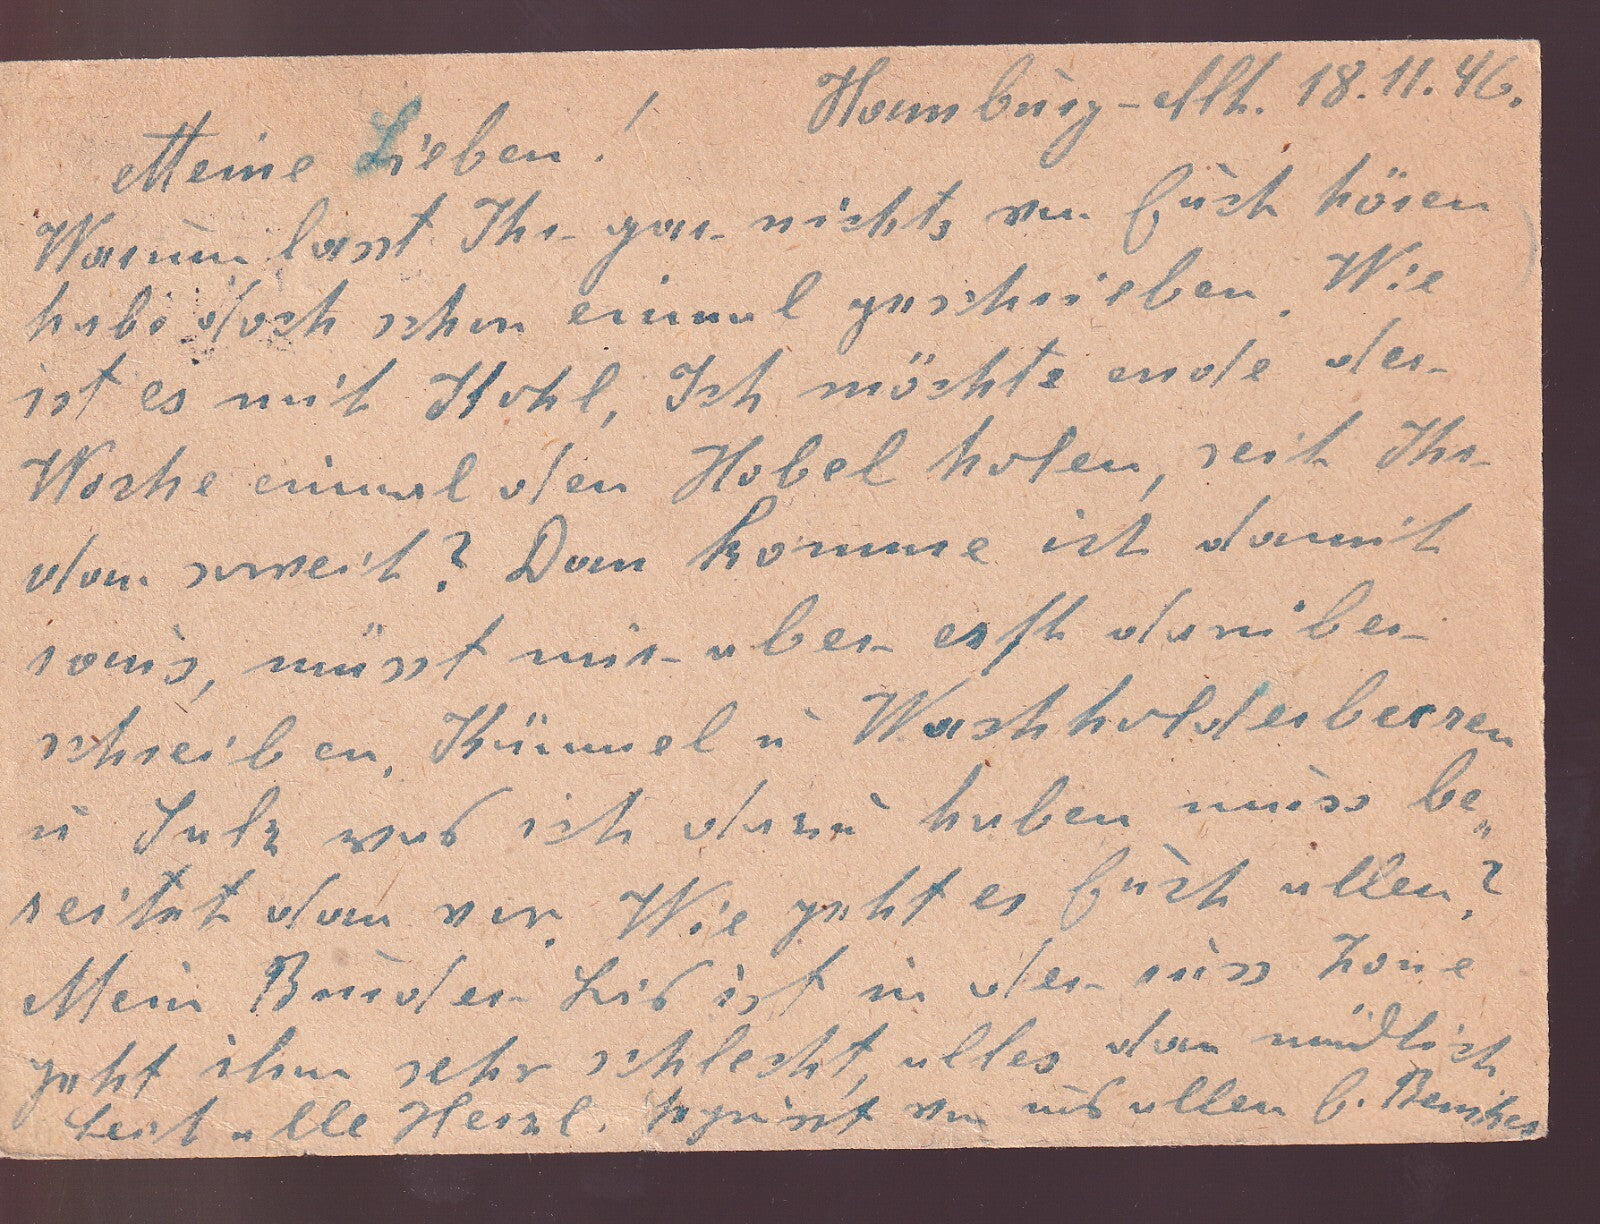 Hamburg-Alt. 18.11.46.
Meine Lieben!
Warum lasst Ihr gar nichts von Euch hören
habe doch schon einmal geschrieben. Wie
ist es mit Kohl, Ich möchte ende der
Woche einmal den Hobel holen, seit Ihr
dan soweit? Dan komme ich damit
raus, müsst mir aber erst darüber
schreiben, Kümmel u Wachholderberren
u Salz was ich dazu haben muss be„
reitet dan vor. Wie geht es Euch allen?
Mein Bruder ist in der russ Zone
geht ihm sehr schlecht, alles dan mündlich
Seit alle Herzl. gegrüsst von uns allen E.